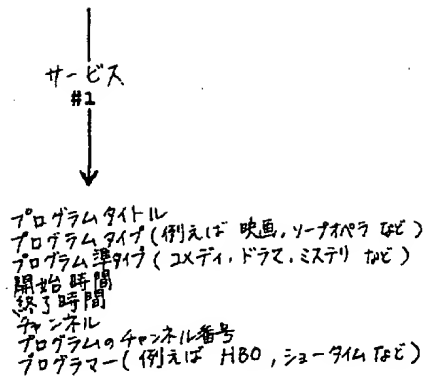 サービス
#1
プログラムタイトル
プログラムタイプ(例えば 映画,ソープオペラ など)
プログラム準タイプ(コメディ,ドラマ,ミステリ など)
開始時間
終了時間
チャンネル
プログラムのチャンネル番号
プログラマー(例えば HBO,ショータイムなど)